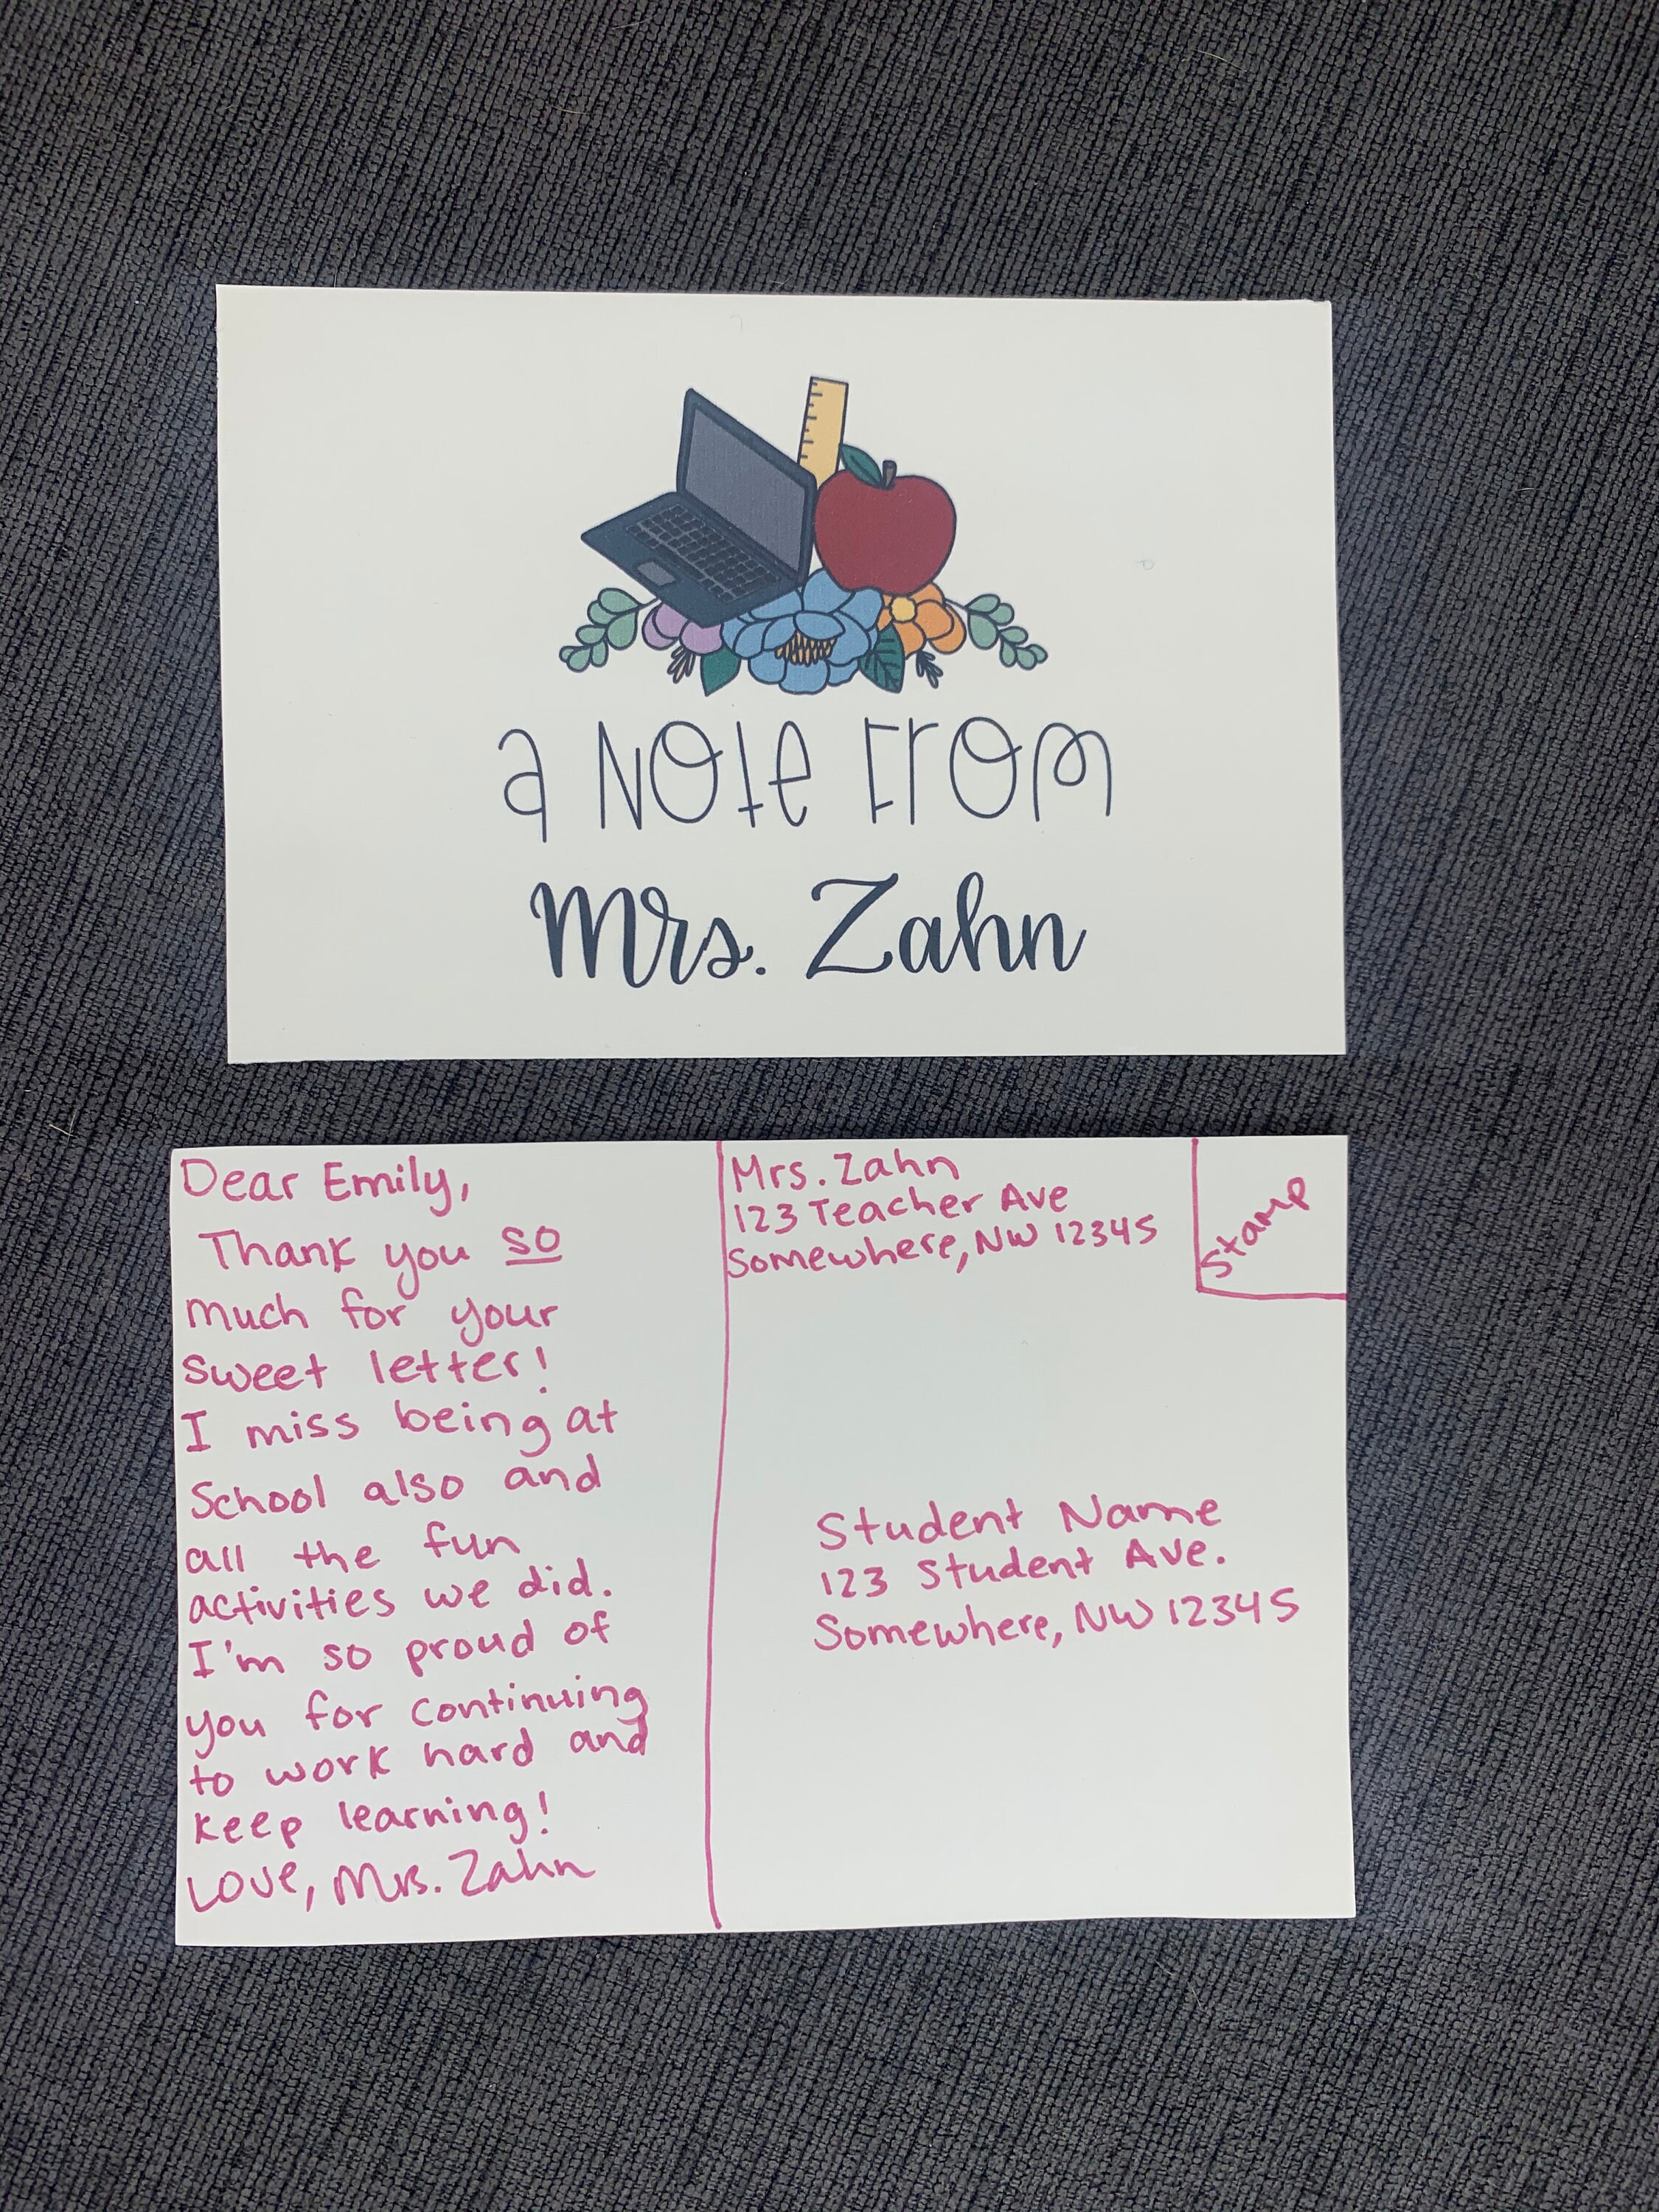 a note from
Mrs. Zahn
Dear Emily,
Thank you so
much for your
sweet letter!
I miss being at
School also and
all the fun
activities we did.
I'm so proud of
you for continuing
to work hard and
keep learning!
Love, Mrs. Zahn
Mrs. Zahn
123 Teacher Ave
Somewhere, NW 12345
Stamp
Student Name
123 Student Ave.
Somewhere, NW 12345